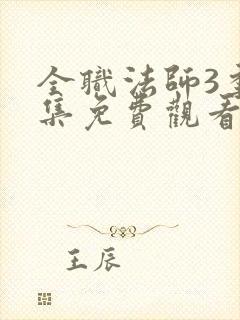 全職法師3季
集免費觀看
王辰